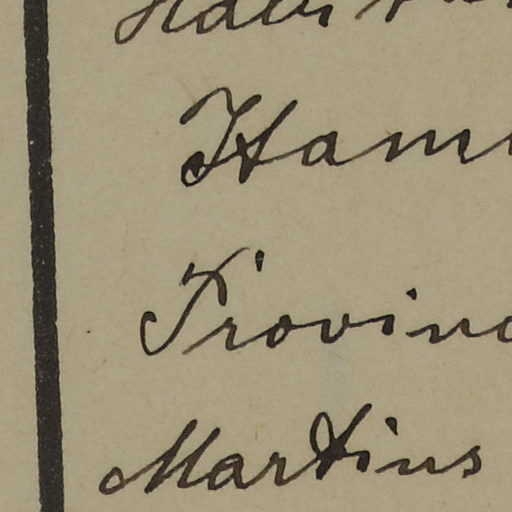 Ham
Provinc
Martins